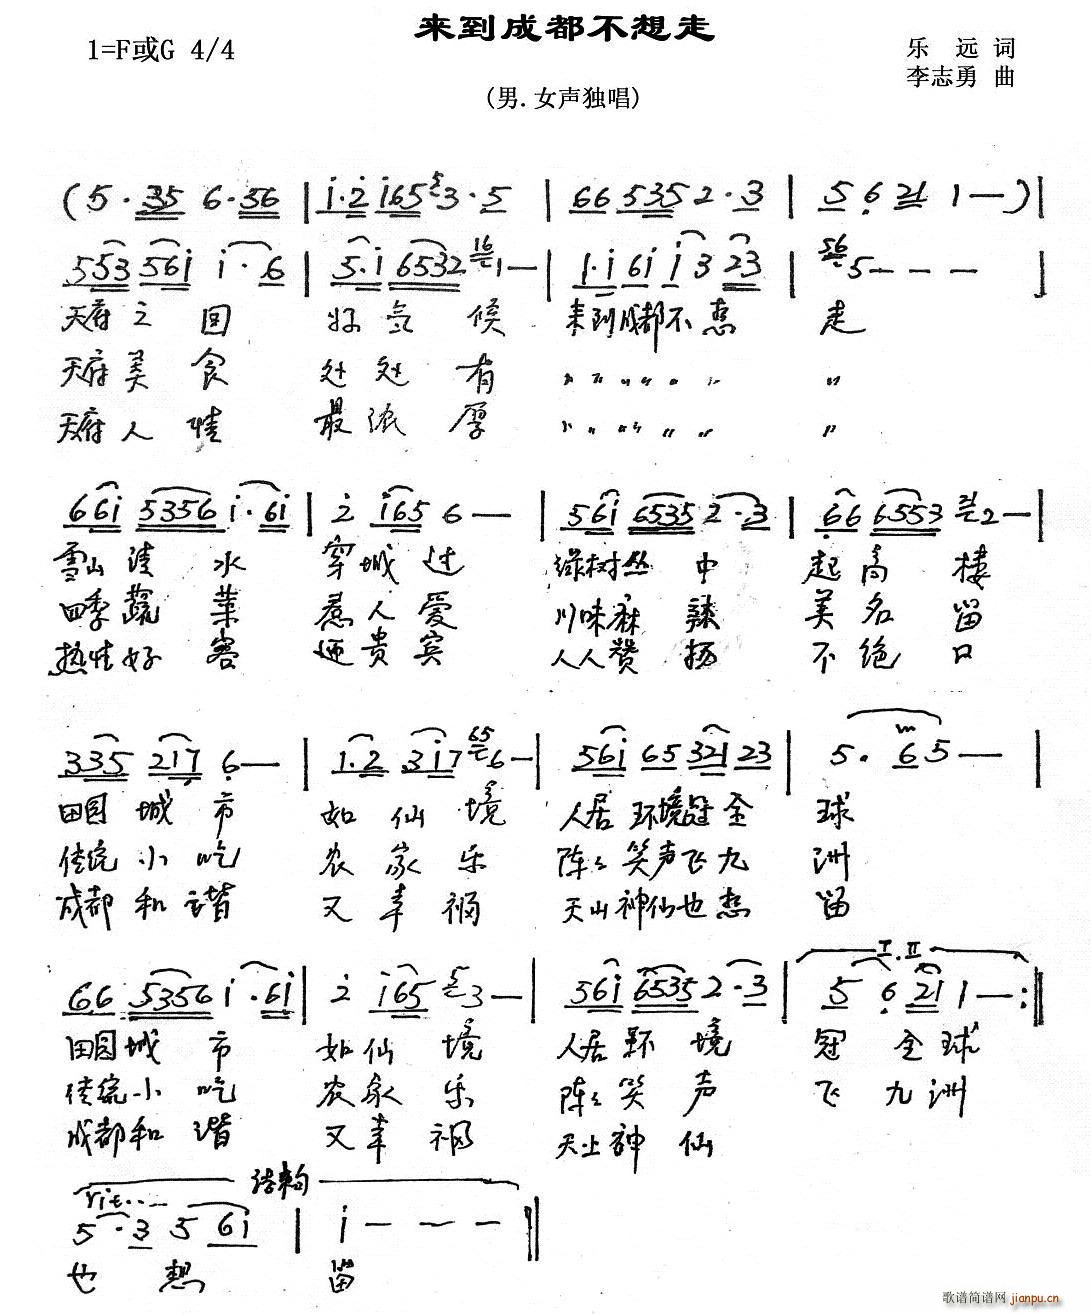 来到成都不想走
1=F或G 4/4
乐 远 词
李志勇 曲
(男.女声独唱)
(5·35 6·56 | i·2 i65 5 3·5 | 66 535 2·3 | 5 6 21 1—)|
553 56i i·6 | 5·i 6532 16 1— | 1·i 6i i3 23 | 56 5— — — ]
天府之国 好气候 来到成都不想 走
天府美食 处处有 〃〃〃〃〃〃 〃
天府人情 最浓厚 〃〃〃〃〃〃 〃
66i 5356 i·6i | 2 i65 6— | 56i 6535 2·3 | 66 6553 21 2— |
雪山清 水 穿城过 绿树丛 中 起高楼
四季蔬 菜 惹人爱 川味麻 辣 美名留
热情好 客 迎贵宾 人人赞 扬 不绝口
335 217 6— | 1·2 3i7 65 6— | 56i 65 321 23 | 5·65— |
田园城市 如仙境 人居环境冠全 球
传统小吃 农家乐 阵阵笑声飞九 洲
成都和谐 又幸福 天山神仙也想 留
66 5356 i·6i | 2 i65 5 3— | 56i 6535 2·3 | I.II 5 6 21 1—:‖
田园城市 如仙境 人居环境 冠全球
传统小吃 农家乐 阵阵笑声 飞九洲
成都和谐 又幸福 天上神仙
结束句
rit...
5·3 5 6i | i — — — ‖
也 想 留
歌谱简谱网
jianpu.cn